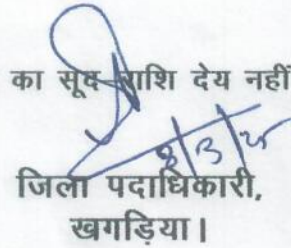 का सूद राशि देय नहीं
8/3/25
जिला पदाधिकारी,
खगड़िया।